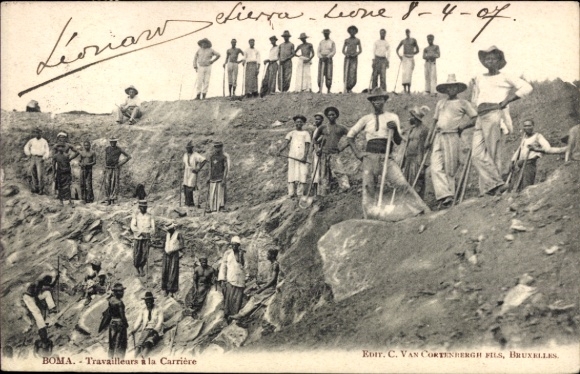 Léonard Sierra-Leone 8-4-07.
BOMA. - Travailleurs à la Carrière
EDIT. C. VAN CORTENBERGH FILS, BRUXELLES.